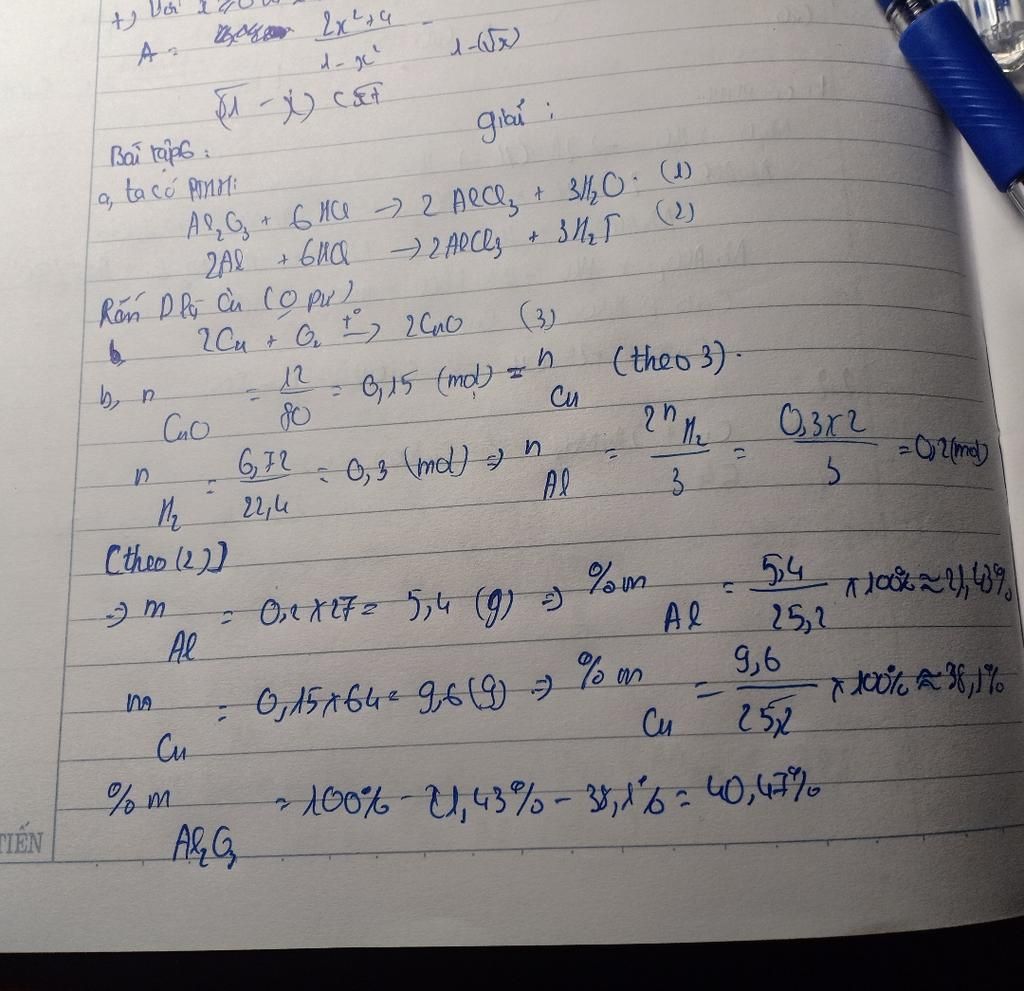 +) Với
A = 2x²+4 / 1-x² - 1-(√x)
giải :
Bài tập 6 :
a, ta có PTHH:
Al₂O₃ + 6HCl → 2AlCl₃ + 3H₂O. (1)
2Al + 6HCl → 2AlCl₃ + 3H₂↑ (2)
Rắn D là Cu (0 pư)
2Cu + O₂ t°→ 2CuO (3)
b, n CuO = 12/80 = 0,15 (mol) = n Cu (theo 3).
n H₂ = 6,72/22,4 = 0,3 (mol) ⇒ n Al = 2n H₂/3 = 0,3x2/3 = 0,2 (mol)
[theo (2)]
⇒ m Al = 0,2 x 27 = 5,4 (g) ⇒ %m Al = 5,4/25,2 x 100% ≈ 21,43%
m Cu = 0,15 x 64 = 9,6 (g) ⇒ %m Cu = 9,6/25,2 x 100% ≈ 38,1%
%m Al₂O₃ = 100% - 21,43% - 38,1% = 40,47%
TIẾN